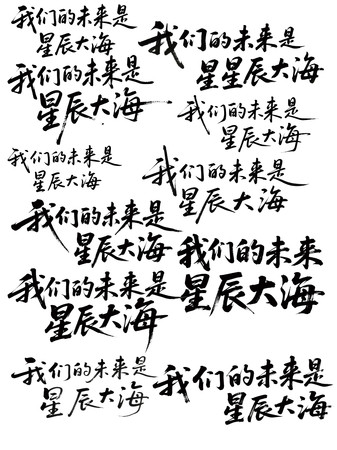 我们的未来是
星辰大海
我们的未来是
星星辰大海
我们的未来是
星辰大海
我们的未来是
星辰大海
我们的未来是
星辰大海
我们的未来是
星辰大海
我们的未来是
星辰大海
我们的未来
星辰大海
我们的未来是
星辰大海
我们的未来是
星辰大海
我们的未来是
星辰大海